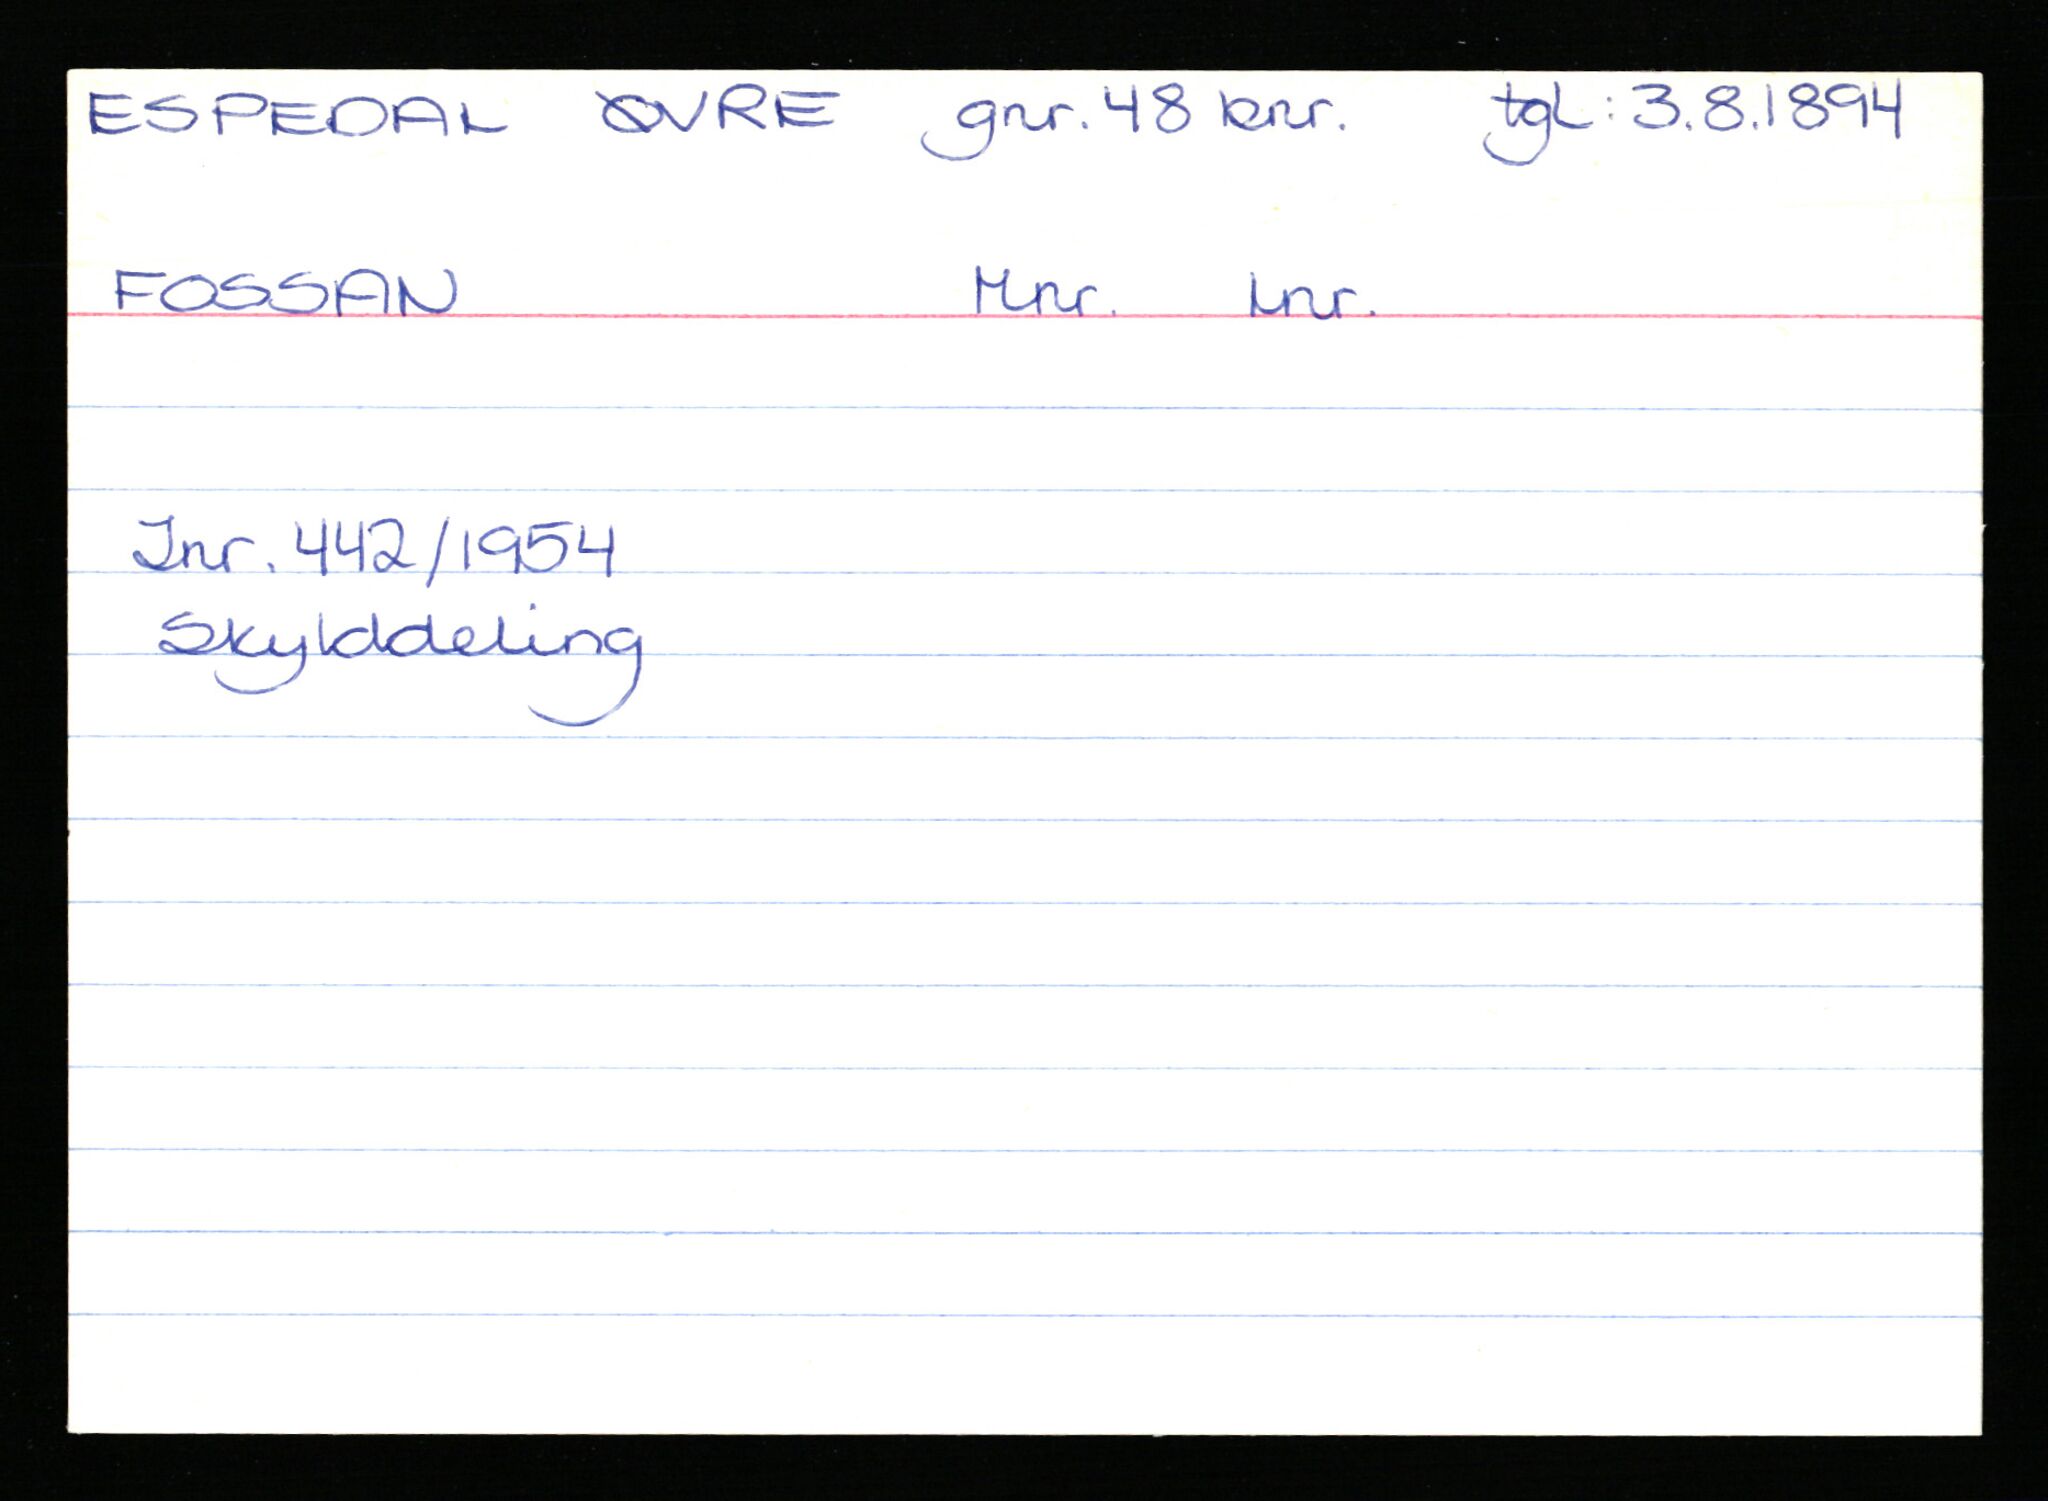 ESPEDAL ØVRE gnr. 48 bnr. tgl: 3.8.1894
FOSSAN Mnr. Lnr.
Jnr. 442/1954
Skylddeling